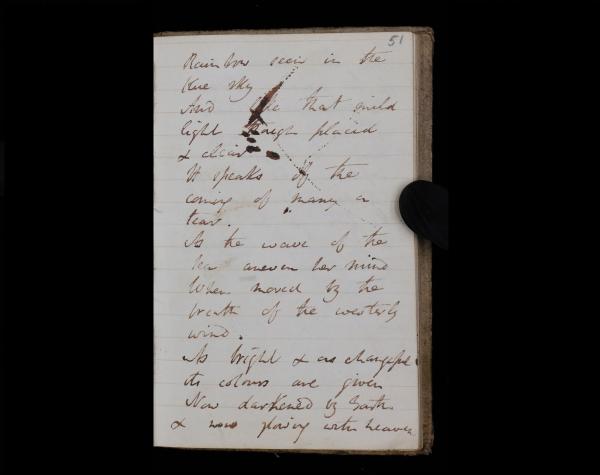 51
Rainbow seen in the
blue sky
And like that mild
light though placid
& clear
It speaks of the
coming of many a
tear.
As the wave of the
sea uneven her mind
When moved by the
breath of the westerly
wind.
As bright & as changeful
its colours are given
Now darkened by Earth
& now glowing with heaven